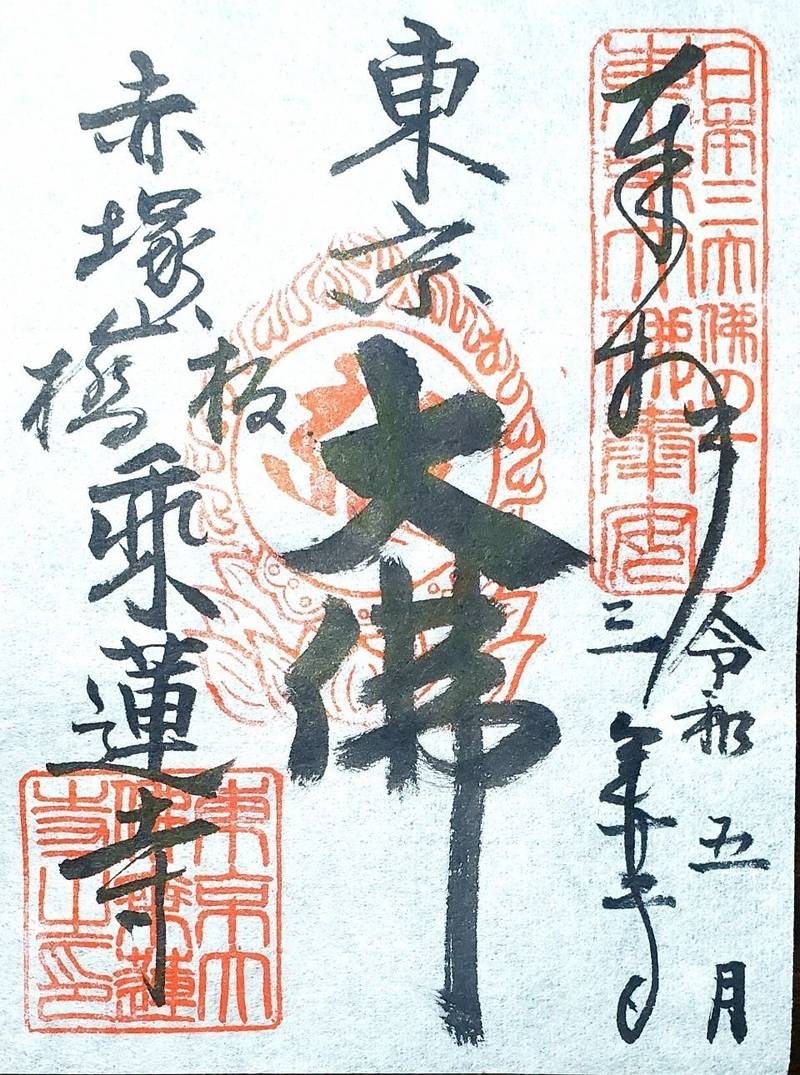 日本三大佛
東京大佛奉安
奉拝
令和五月
三年
東京
大佛
板橋
赤塚山
乗蓮寺
東京大
佛乗蓮
寺之印